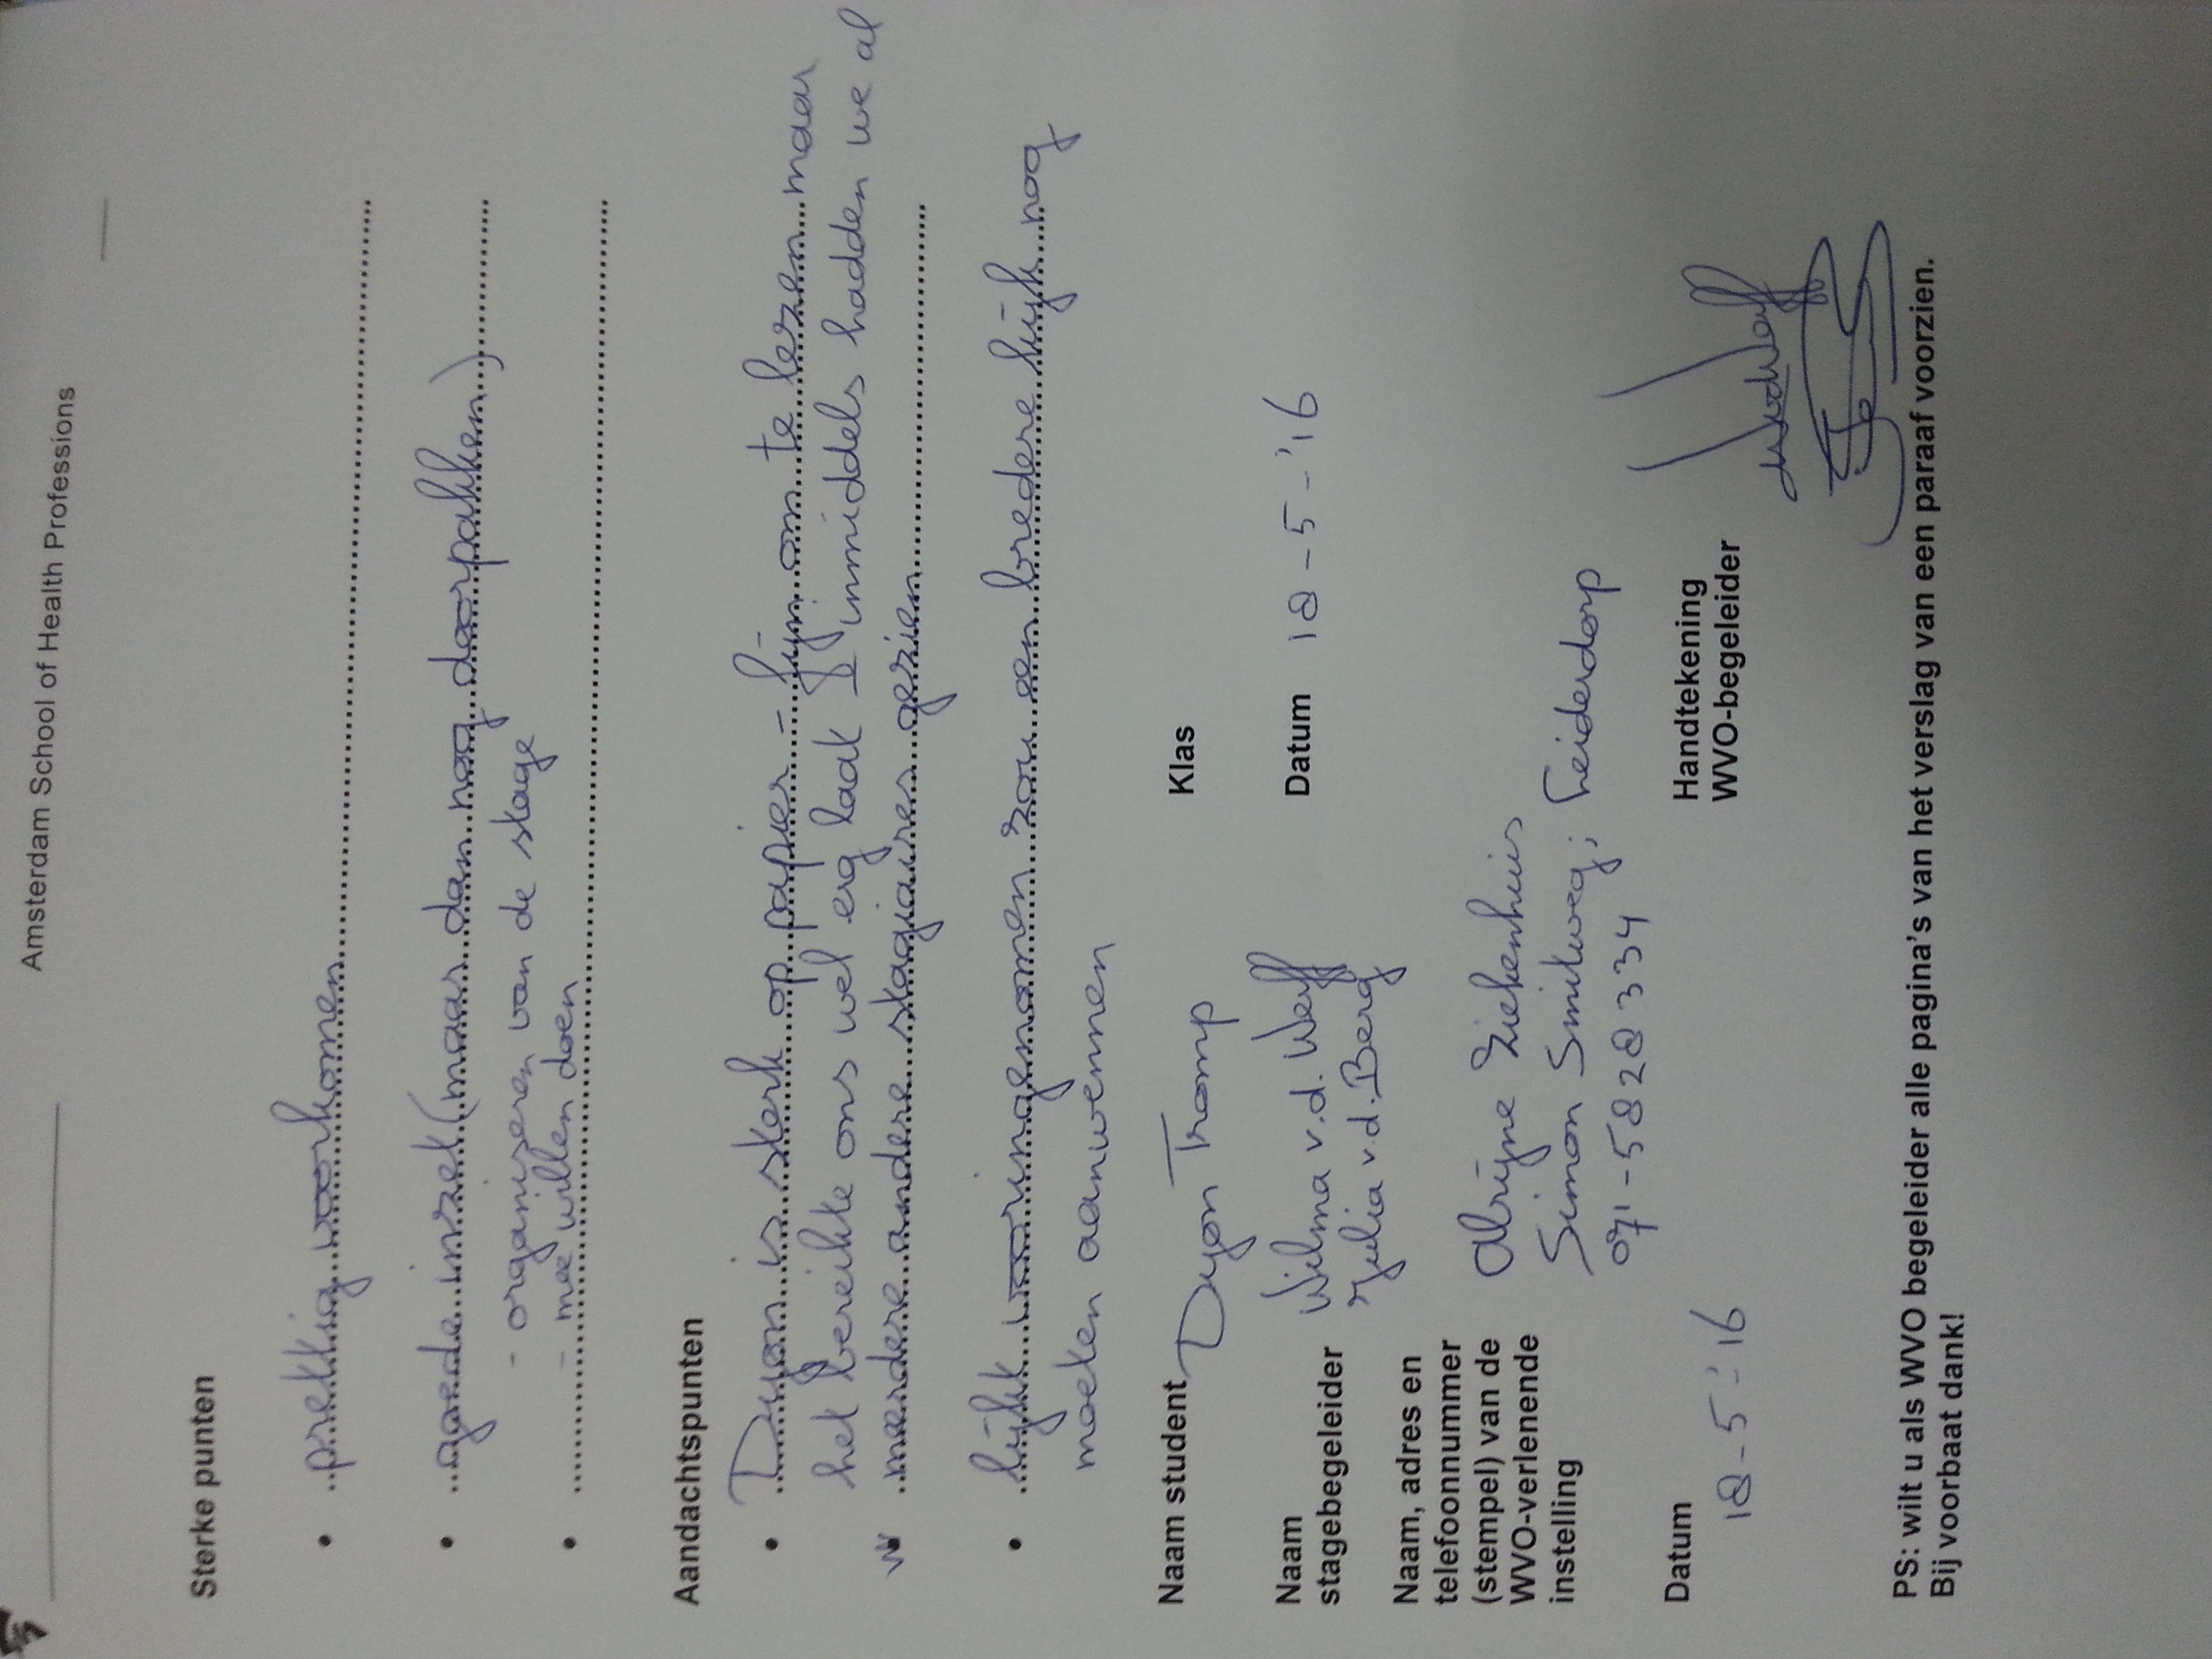 Amsterdam School of Health Professions
Sterke punten
• prettig voorkomen
• goede inzet (maar dan nog doorpakken)
- organiseren van de stage
• - mee willen doen
Aandachtspunten
• Dyon is sterk op papier - fijn om te lezen maar
het bereikte ons wel erg laat Inmiddels hadden we al
meerdere andere stagiaires gezien
• lijkt vooringenomen zou een bredere kijk nog
moeten aanwennen
Naam student Dyon Tromp Klas
Naam stagebegeleider Wilma v.d. Werff Datum 18-5-'16
Julia v.d. Berg
Naam, adres en
telefoonnummer
(stempel) van de
WVO-verlenende
instelling
Alrijne Ziekenhuis
Simon Smitweg; Leiderdorp
071-5828334
Datum 18-5-'16
Handtekening
WVO-begeleider
PS: wilt u als WVO begeleider alle pagina's van het verslag van een paraaf voorzien.
Bij voorbaat dank!